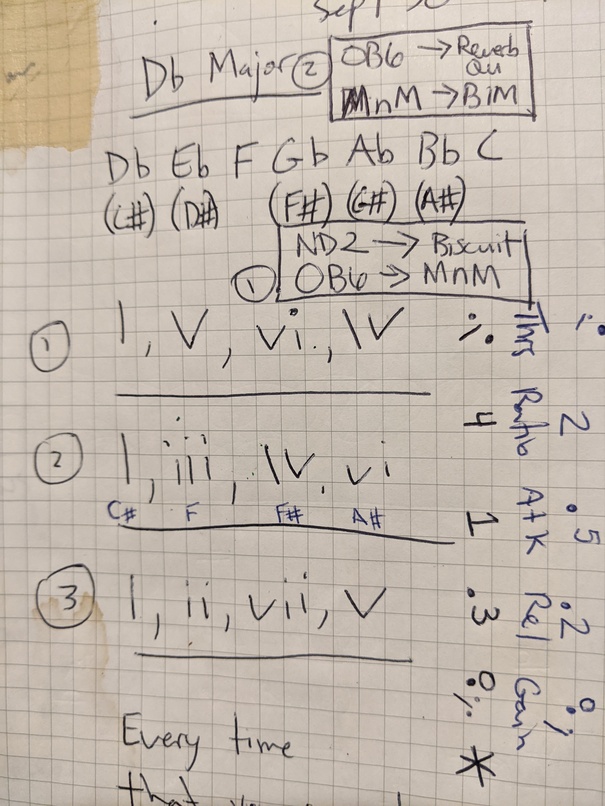 Sept 30
Db Major ②
OB6 → Reverb
Qu
MnM → BIM
Db Eb F Gb Ab Bb C
(C#) (D#) (F#) (G#) (A#)
ND2 → Biscuit
① OB6 → MnM
① I, V, vi, IV
② I, iii, IV, vi
C# F F# A#
③ I, ii, vii, V
Every time
2 .5 .2 0
Thrs Ratio Atk Rel Gain
4 1 .3 0 *